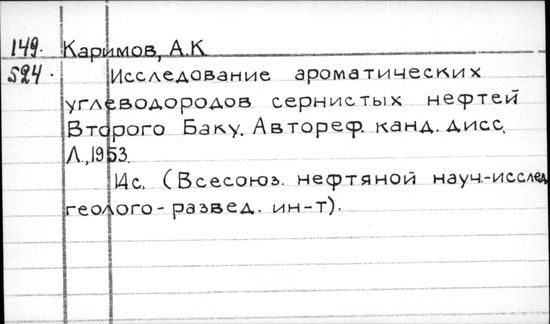 149. Каримов, А.К
524. Исследование ароматических
углеводородов сернистых нефтей
Второго Баку. Автореф. канд. дисс.
Л., 1953.
14с. (Всесоюз. нефтяной науч-исслед
геолого-развед. ин-т).